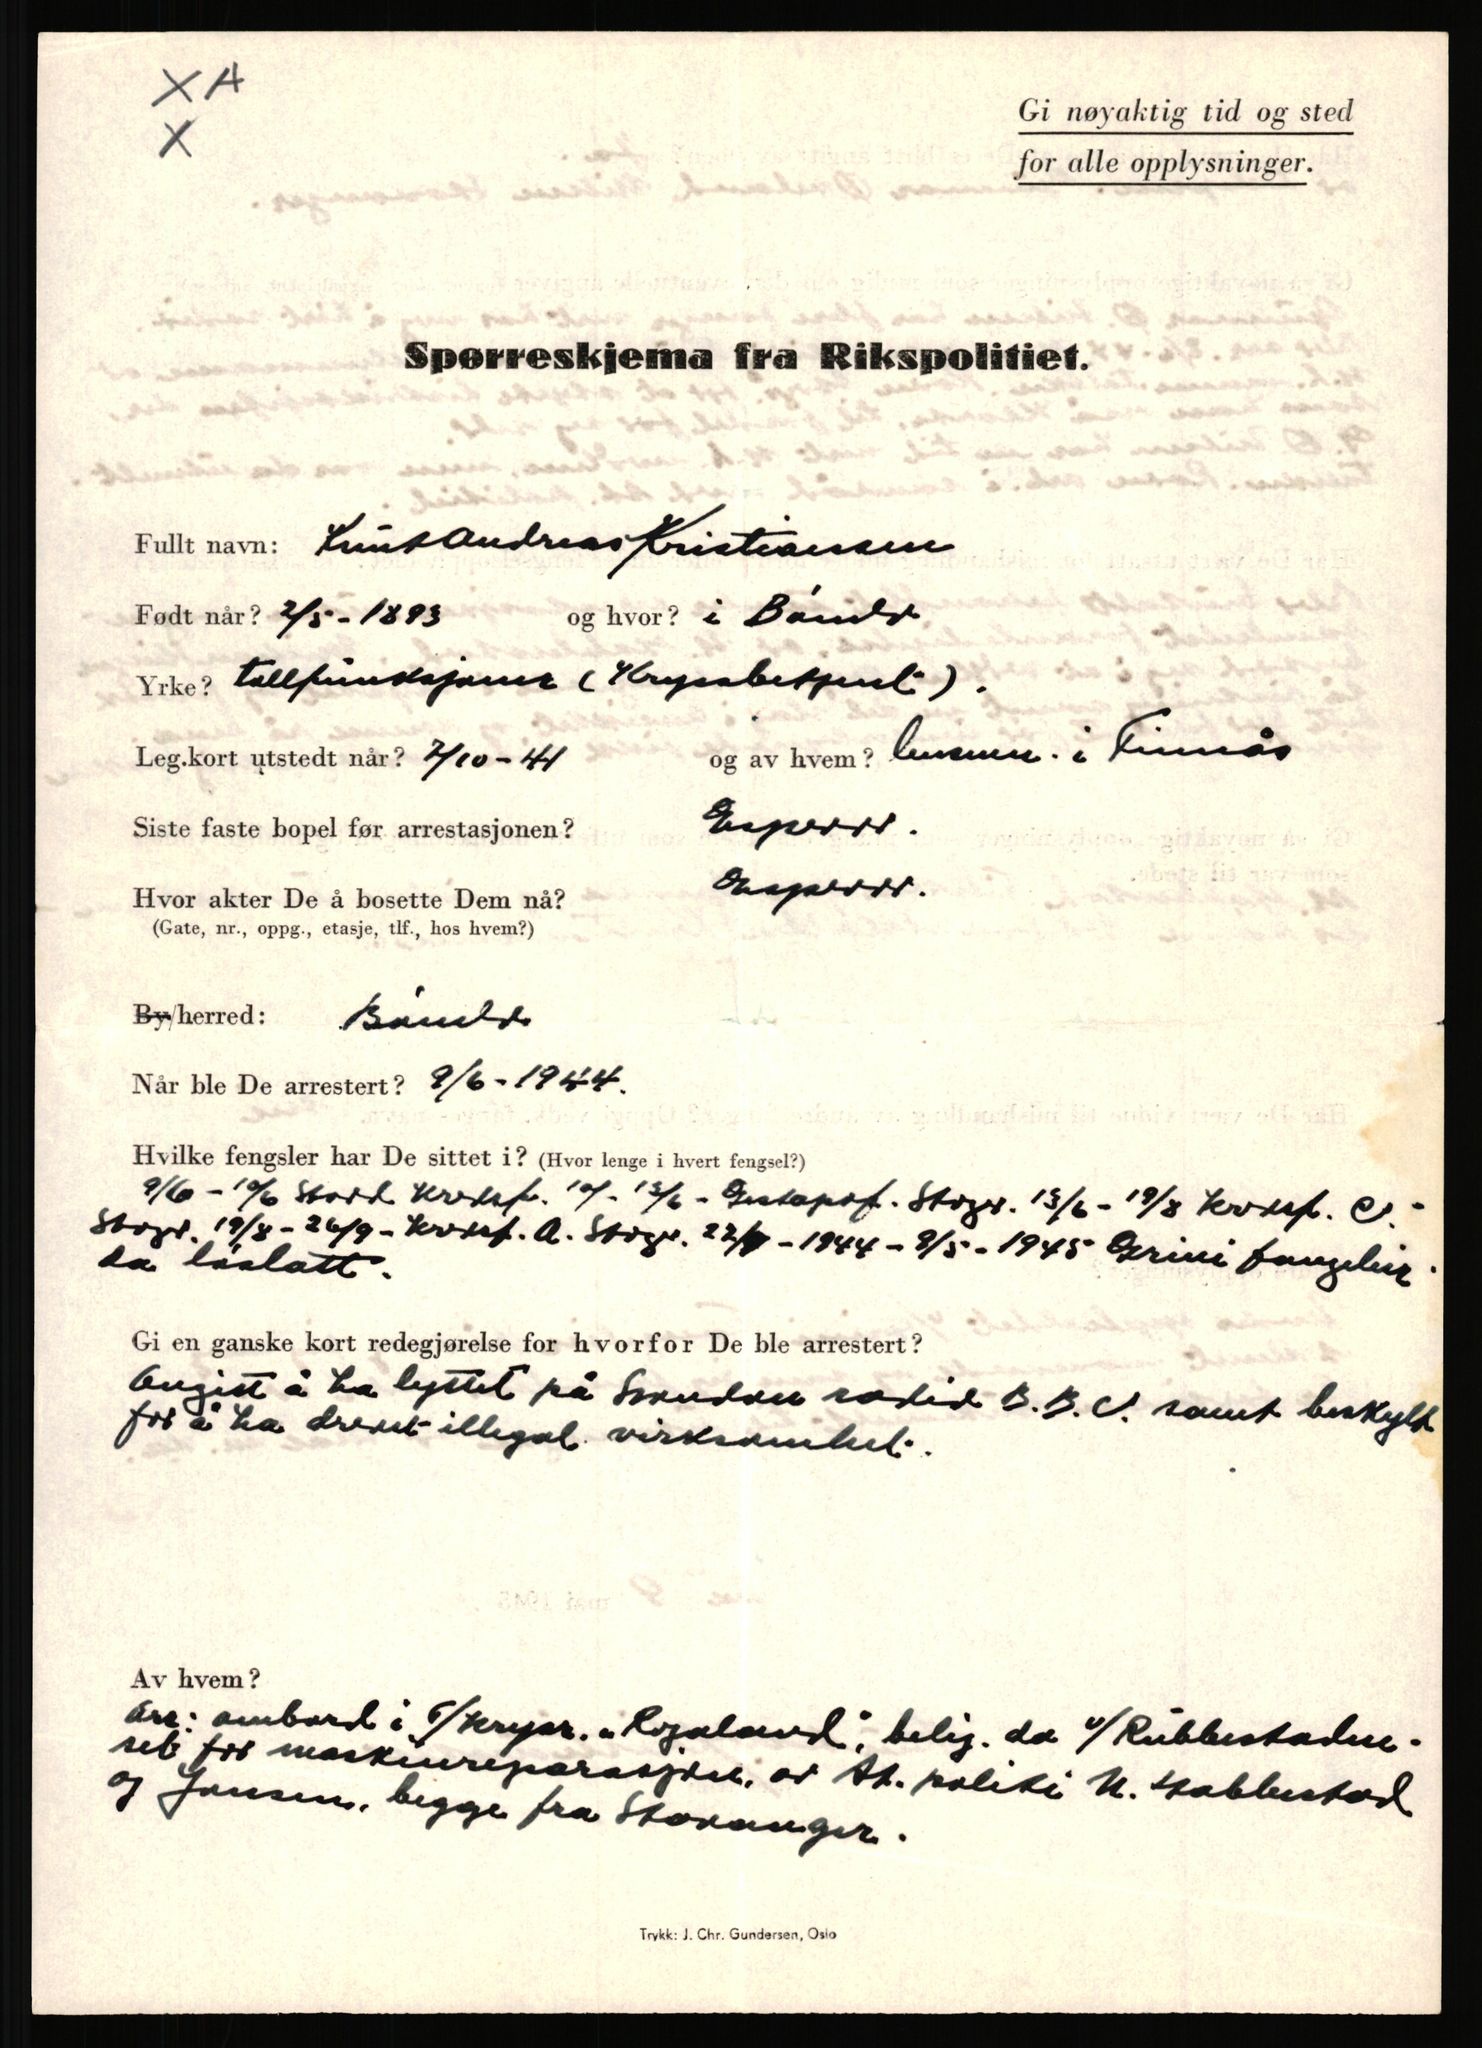 X A
X
Gi nøyaktig tid og sted
for alle opplysninger.
Spørreskjema fra Rikspolitiet.
Fullt navn: Knut Andreas Kristiansen
Født når? 2/5 - 1893 og hvor? i Bømlo
Yrke? tollfunksjonær (Kryssbetjent).
Leg.kort utstedt når? 7/10 - 41 og av hvem? lensm. i Finnås
Siste faste bopel før arrestasjonen? Espevær.
Hvor akter De å bosette Dem nå? Espevær.
(Gate, nr., oppg., etasje, tlf., hos hvem?)
By/herred: Bømlo
Når ble De arrestert? 9/6 - 1944.
Hvilke fengsler har De sittet i? (Hvor lenge i hvert fengsel?)
9/6 - 10/6 Stord Kretsf. 10/ - 13/6 - Gestapof. Stvgr. 13/6 - 19/8 Kretsf. C.
Stvgr. 19/8 - 26/9 - Kretsf. A. Stvgr. - 1944 - 8/5 - 1945 Grini fangeleir
da løslatt.
Gi en ganske kort redegjørelse for hvorfor De ble arrestert?
Angitt å ha lyttet på London radio B.B.C. samt beskylt
for å ha drevet illegal virksomhet.
Av hvem?
Arr: ombord i T/kryss. "Rogaland", belig. da v/Rubbestadne-
set for maskinreparasjon, av St. politi N. Stabbestad
og Jonsen, begge fra Stavanger.
Trykk: J. Chr. Gundersen, Oslo